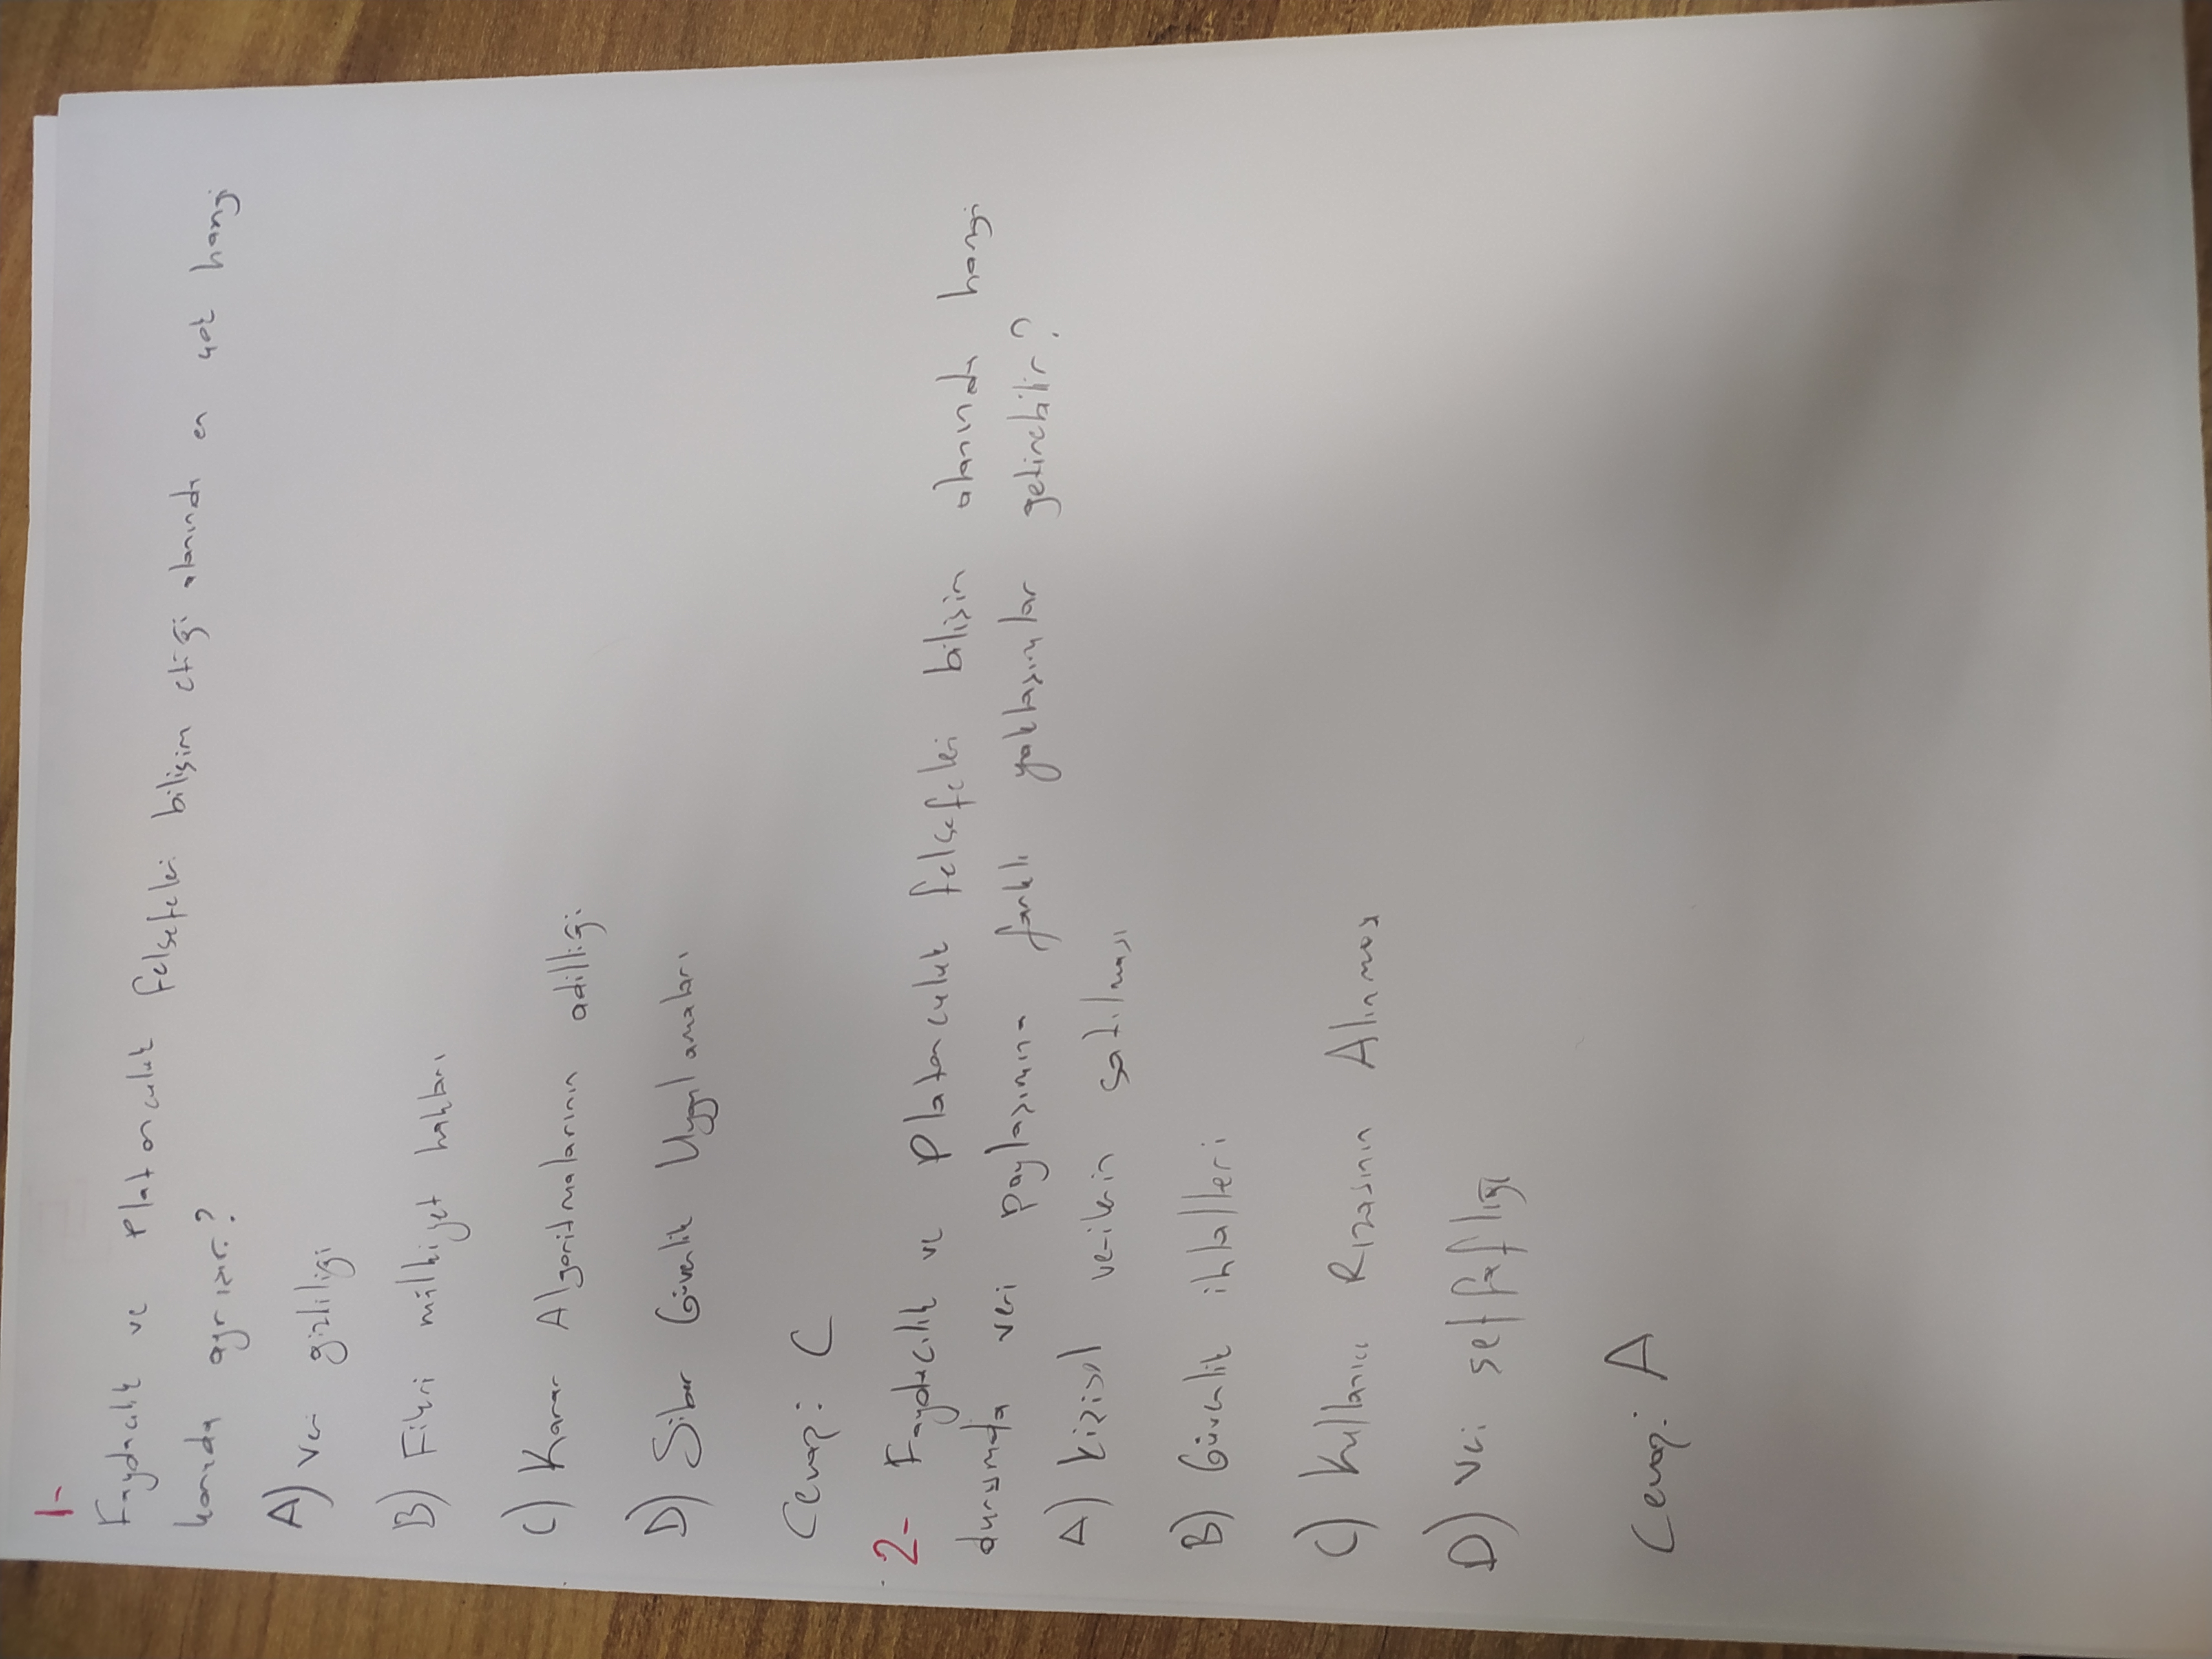 1-
Faydacılık ve Platonculuk felsefeleri bilişim etiği alanında en çok hangi
konuda ayrışır?
A) Veri gizliliği
B) Fikri mülkiyet hakları
C) Karar Algoritmalarının adilliği
D) Siber Güvenlik Uygulamaları
Cevap: C
2- Faydacılık ve Platonculuk felsefeleri bilişim alanında hangi
durumda veri paylaşımına farklı yaklaşımlar getirebilir?
A) Kişisel verilerin satılması
B) Güvenlik ihlalleri
C) Kullanıcı Rızasının Alınması
D) Veri seffaflığı
Cevap: A